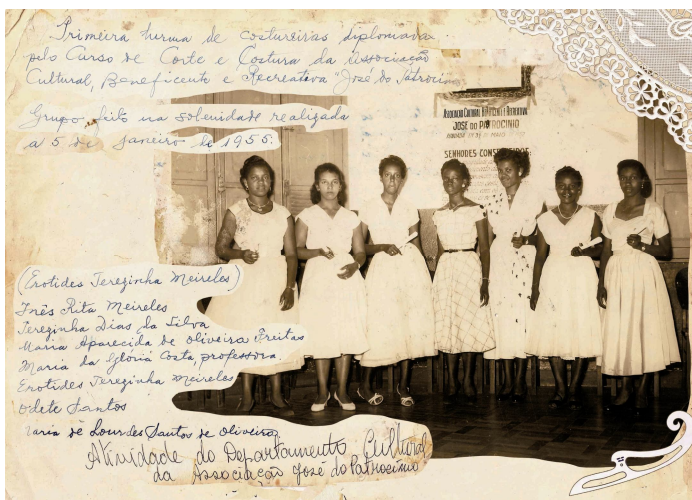 Primeira turma de costureiras diplomava
pelo Curso de Corte e Costura da Associação
Cultural, Beneficente e Recreativa "José do Patrocin
Grupo feito na solenidade realizada
a 5 de Janeiro de 1955.
ASSOCIAÇÃO CULTURAL BENEFICENTE E RECREATIVA
JOSÉ DO PATROCINIO
SENHORES CONSELHEIROS:
(Erotides Terezinha Meireles)
Inês Rita Meireles
Terezinha Dias da Silva
Maria Aparecida de Oliveira Freitas
Maria da Glória Costa, professora.
Erotides Terezinha Meireles
Odete Santos
Maria de Lourdes Santos de Oliveira
Atividade do Departamento Cultural
da Associação José do Patrocínio